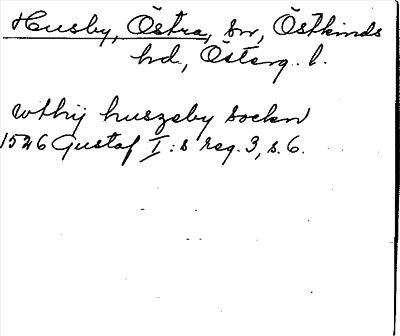 Husby, Östra, sn, Östkinds
hd., Österg. l.
wthij huszeby sockn
1526 Gustaf I:s reg. 3, s. 6.